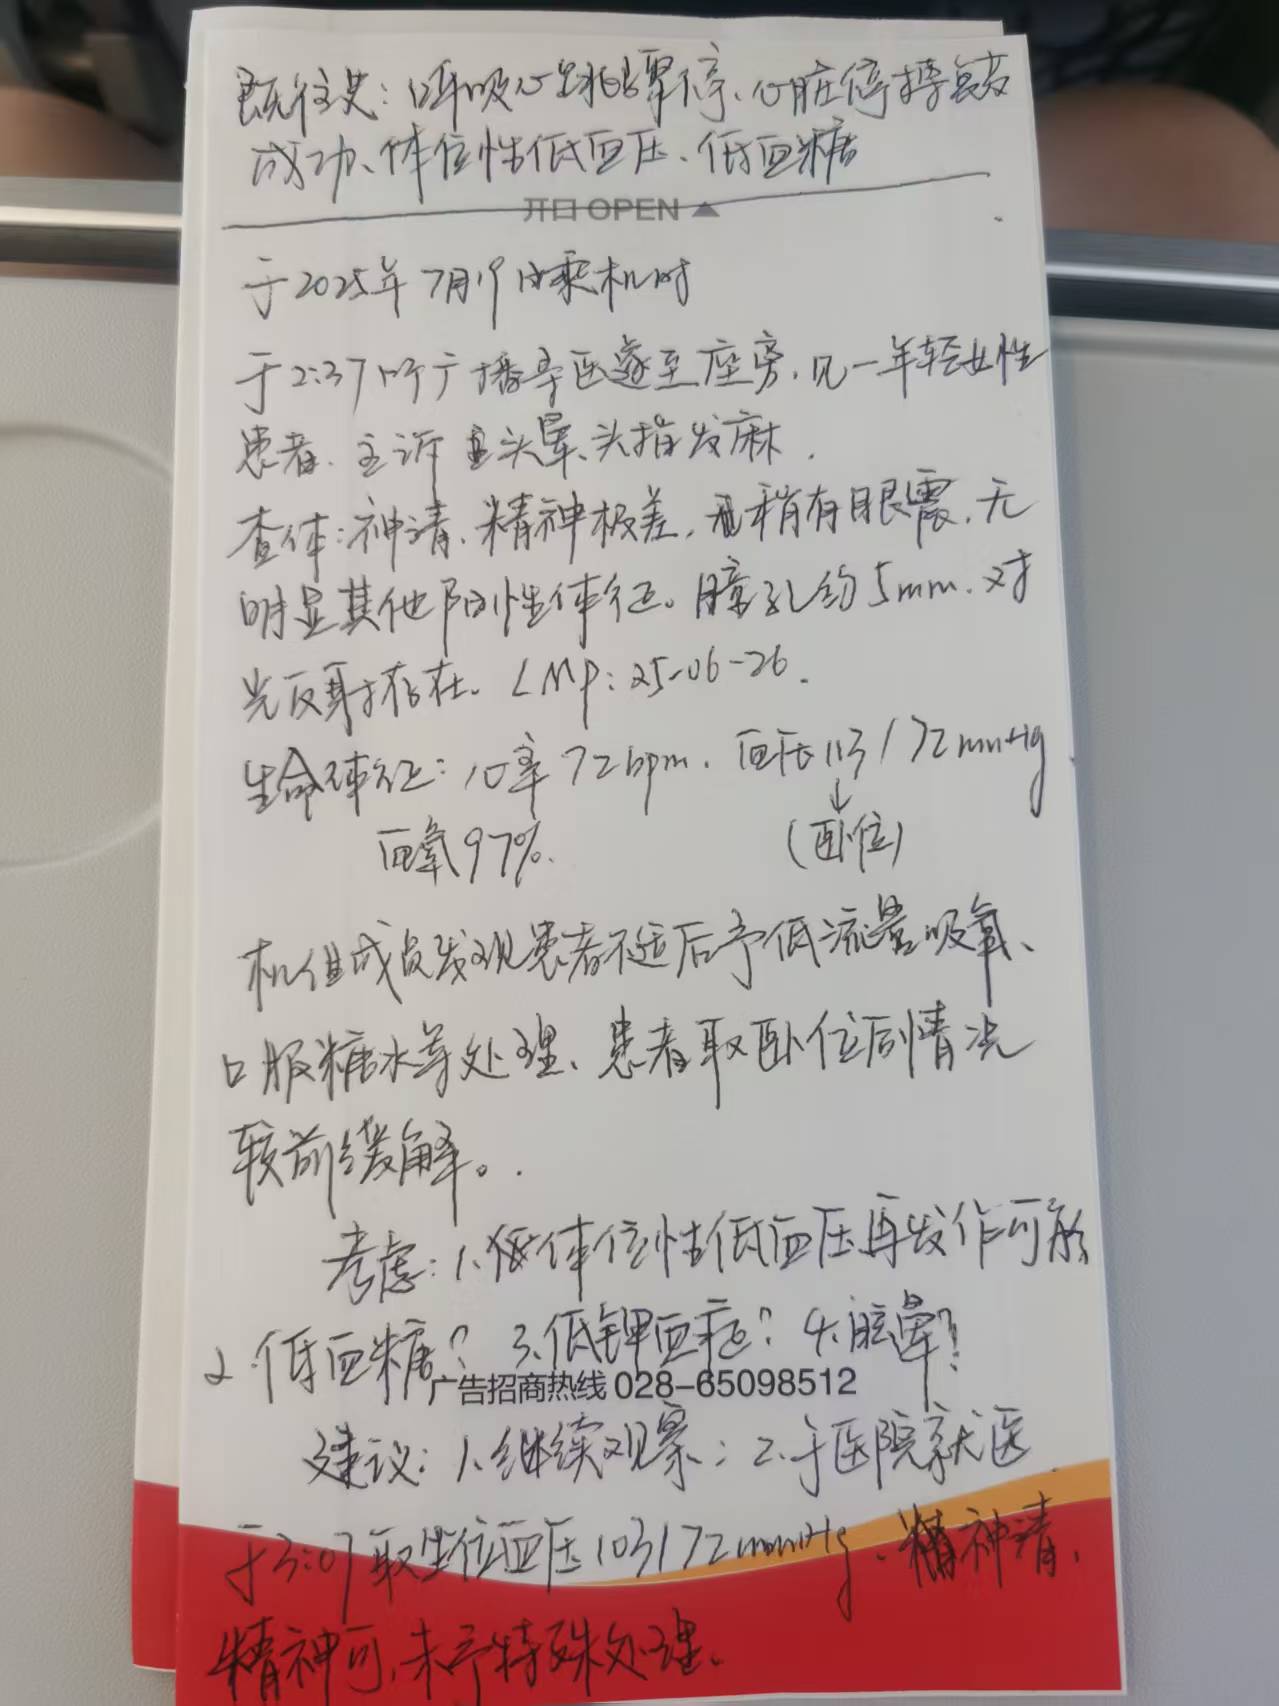 既往史：呼吸心跳骤停、心脏停搏复苏
成功、体位性低血压、低血糖
开口 OPEN
于2025年7月19日乘机时
于2:37听广播寻医遂至座旁，见一年轻女性
患者，主诉头晕、头指发麻．
查体：神清、精神极差，稍有眼震，无
明显其他阳性体征。瞳孔约5mm．对
光反射存在。LMP：25-06-26．
生命体征：心率72bpm．血压113/72mmHg
血氧97%． （卧位）
机组成员发现患者不适后予低流量吸氧、
口服糖水等处理、患者取卧位后情况
较前缓解。
考虑：1、体位性低血压再发作可能
2．低血糖？ 3、低钾血症？ 4、眩晕？
广告招商热线 028-65098512
建议：1、继续观察；2、于医院就医
于3:07取坐位血压103/72mmHg、精神清，
精神可，未予特殊处理。